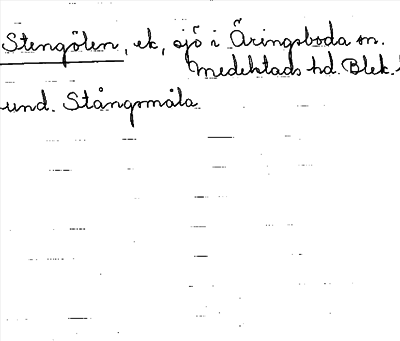 Stengölen, ek, sjö i Äringsboda sn.
Medelstads hd. Blek. l
und. Stångsmåla